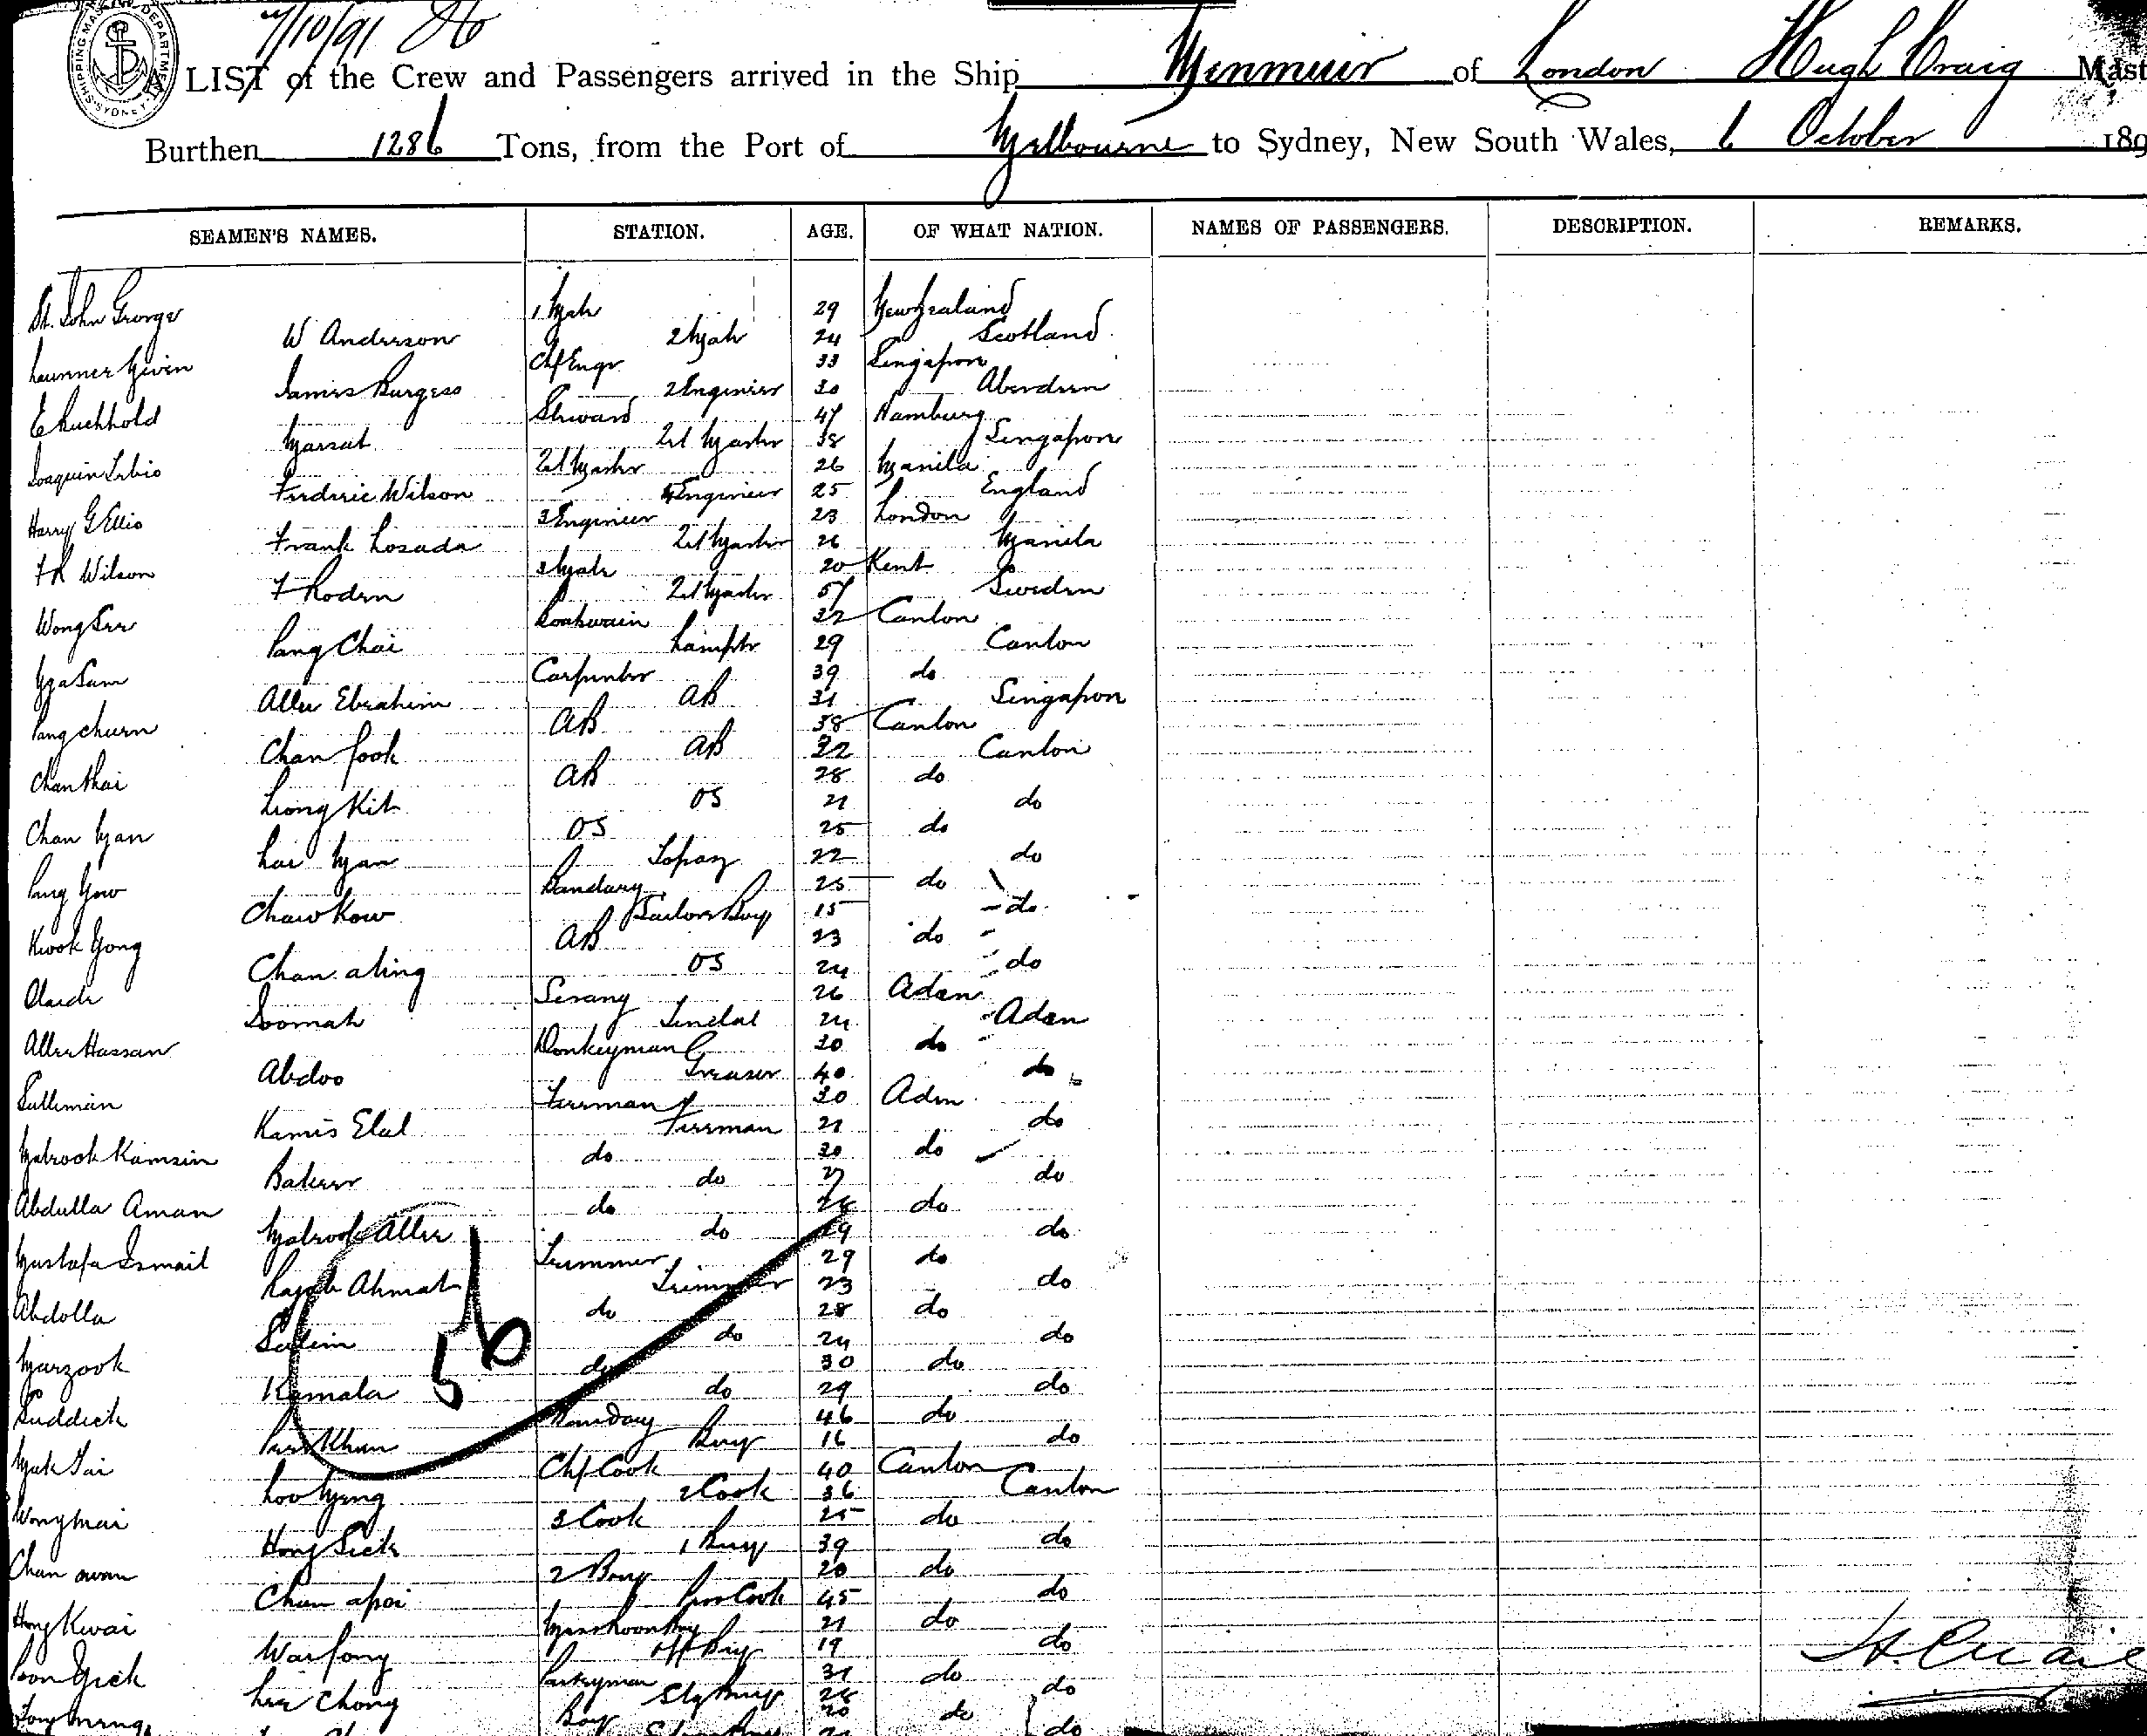 SHIPPING MASTER'S DEPARTMENT SYDNEY
7/10/91
A LIST of the Crew and Passengers arrived in the Ship Menmuir of London Hugh Craig Mast
Burthen 1286 Tons, from the Port of Melbourne to Sydney, New South Wales, 6 October 189
SEAMEN'S NAMES. STATION. AGE. OF WHAT NATION. NAMES OF PASSENGERS. DESCRIPTION. REMARKS.
St. John George 1 Mate 29 New Zealand
W Anderson 2 Mate 24 Scotland
Chf Engr 33 Singapore
James Burgess 2 Engineer 30 Aberdeen
E Ruchhold Steward 47 Hamburg
Marsat 38 Singapore
Joaquin 26 Manila
Frederic Wilson 4 Engineer 25 England
Harry G Ellis 3 Engineer 23 London
Frank Losada 26 Manila
F R Wilson 3 Mate 20 Kent
F Rodin 57 Sweden
Wong See Boatswain 32 Canton
Pang Chai Lamptr 29 Canton
Carpenter 39 do
Allee Ebrahim AB 31 Singapore
Pang Churn AB 38 Canton
Chan fook AB 32 Canton
Chan Thai AB 28 do
Leong Kit OS 21 do
Chan Man OS 25 do
Lai Man Topaz 22 do
Pang Yow Bandary 25 do
Chaw Kow Sailors Boy 15 do
Kwok Yong AB 23 do
Chan ahing OS 24 do
Serang 26 Aden
Soomah Tindal 24 Aden
Allee Hassan Donkeyman 30 do
Abdoo Greaser 40 do
Sulleman Fireman 30 Aden
Kamis Elal Fireman 21 do
Mabrook Kamsin do 30 do
do 27 do
Abdulla Aman do 28 do
Mabrook Allee do 29 do
Mustafa Ismail Trimmer 29 do
Rajab Ahmat Trimmer 23 do
Abdolla do 28 do
Salim do 24 do
Marzook do 30 do
Kamala do 29 do
56
Suddick 46 do
Khan Boy 16 do
Mak Tai Chf Cook 40 Canton
2 Cook 36 Canton
Wong mai 3 Cook 25 do
Hong Sick 1 Boy 39 do
Chan 2 Boy 20 do
Chan apoi Cook 45 do
Hong Kwai Messroom Boy 21 do
War fong Boy 19 do
Pantryman 31 do
Lee Chong 28 do
Boy 20 do
do